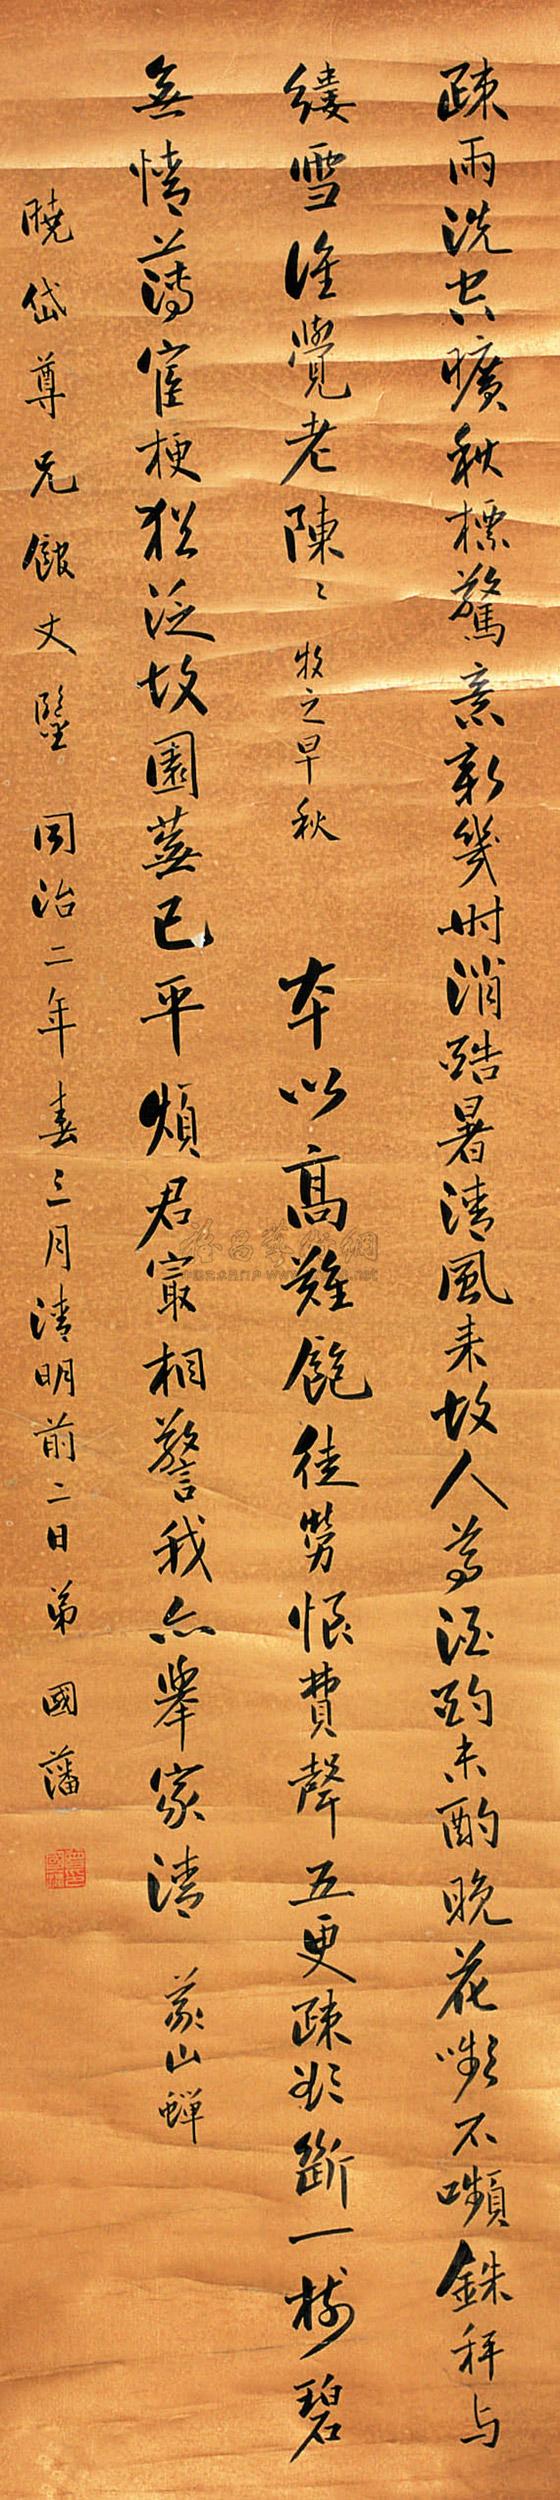 疎雨洗空曠秋標驚意新幾時消酷暑清風来故人尊酒酌未酌晚花嚬不嚬銖秤与
縷雪谁覺老陳〻牧之早秋 本以高難飽徒勞恨費聲五更疎欲斷一樹碧
無情薄宦梗猶泛故園蕪已平煩君最相警我亦舉家清 義山蟬
曉岱尊兄館丈鑒 同治二年春三月清明前二日弟 國藩